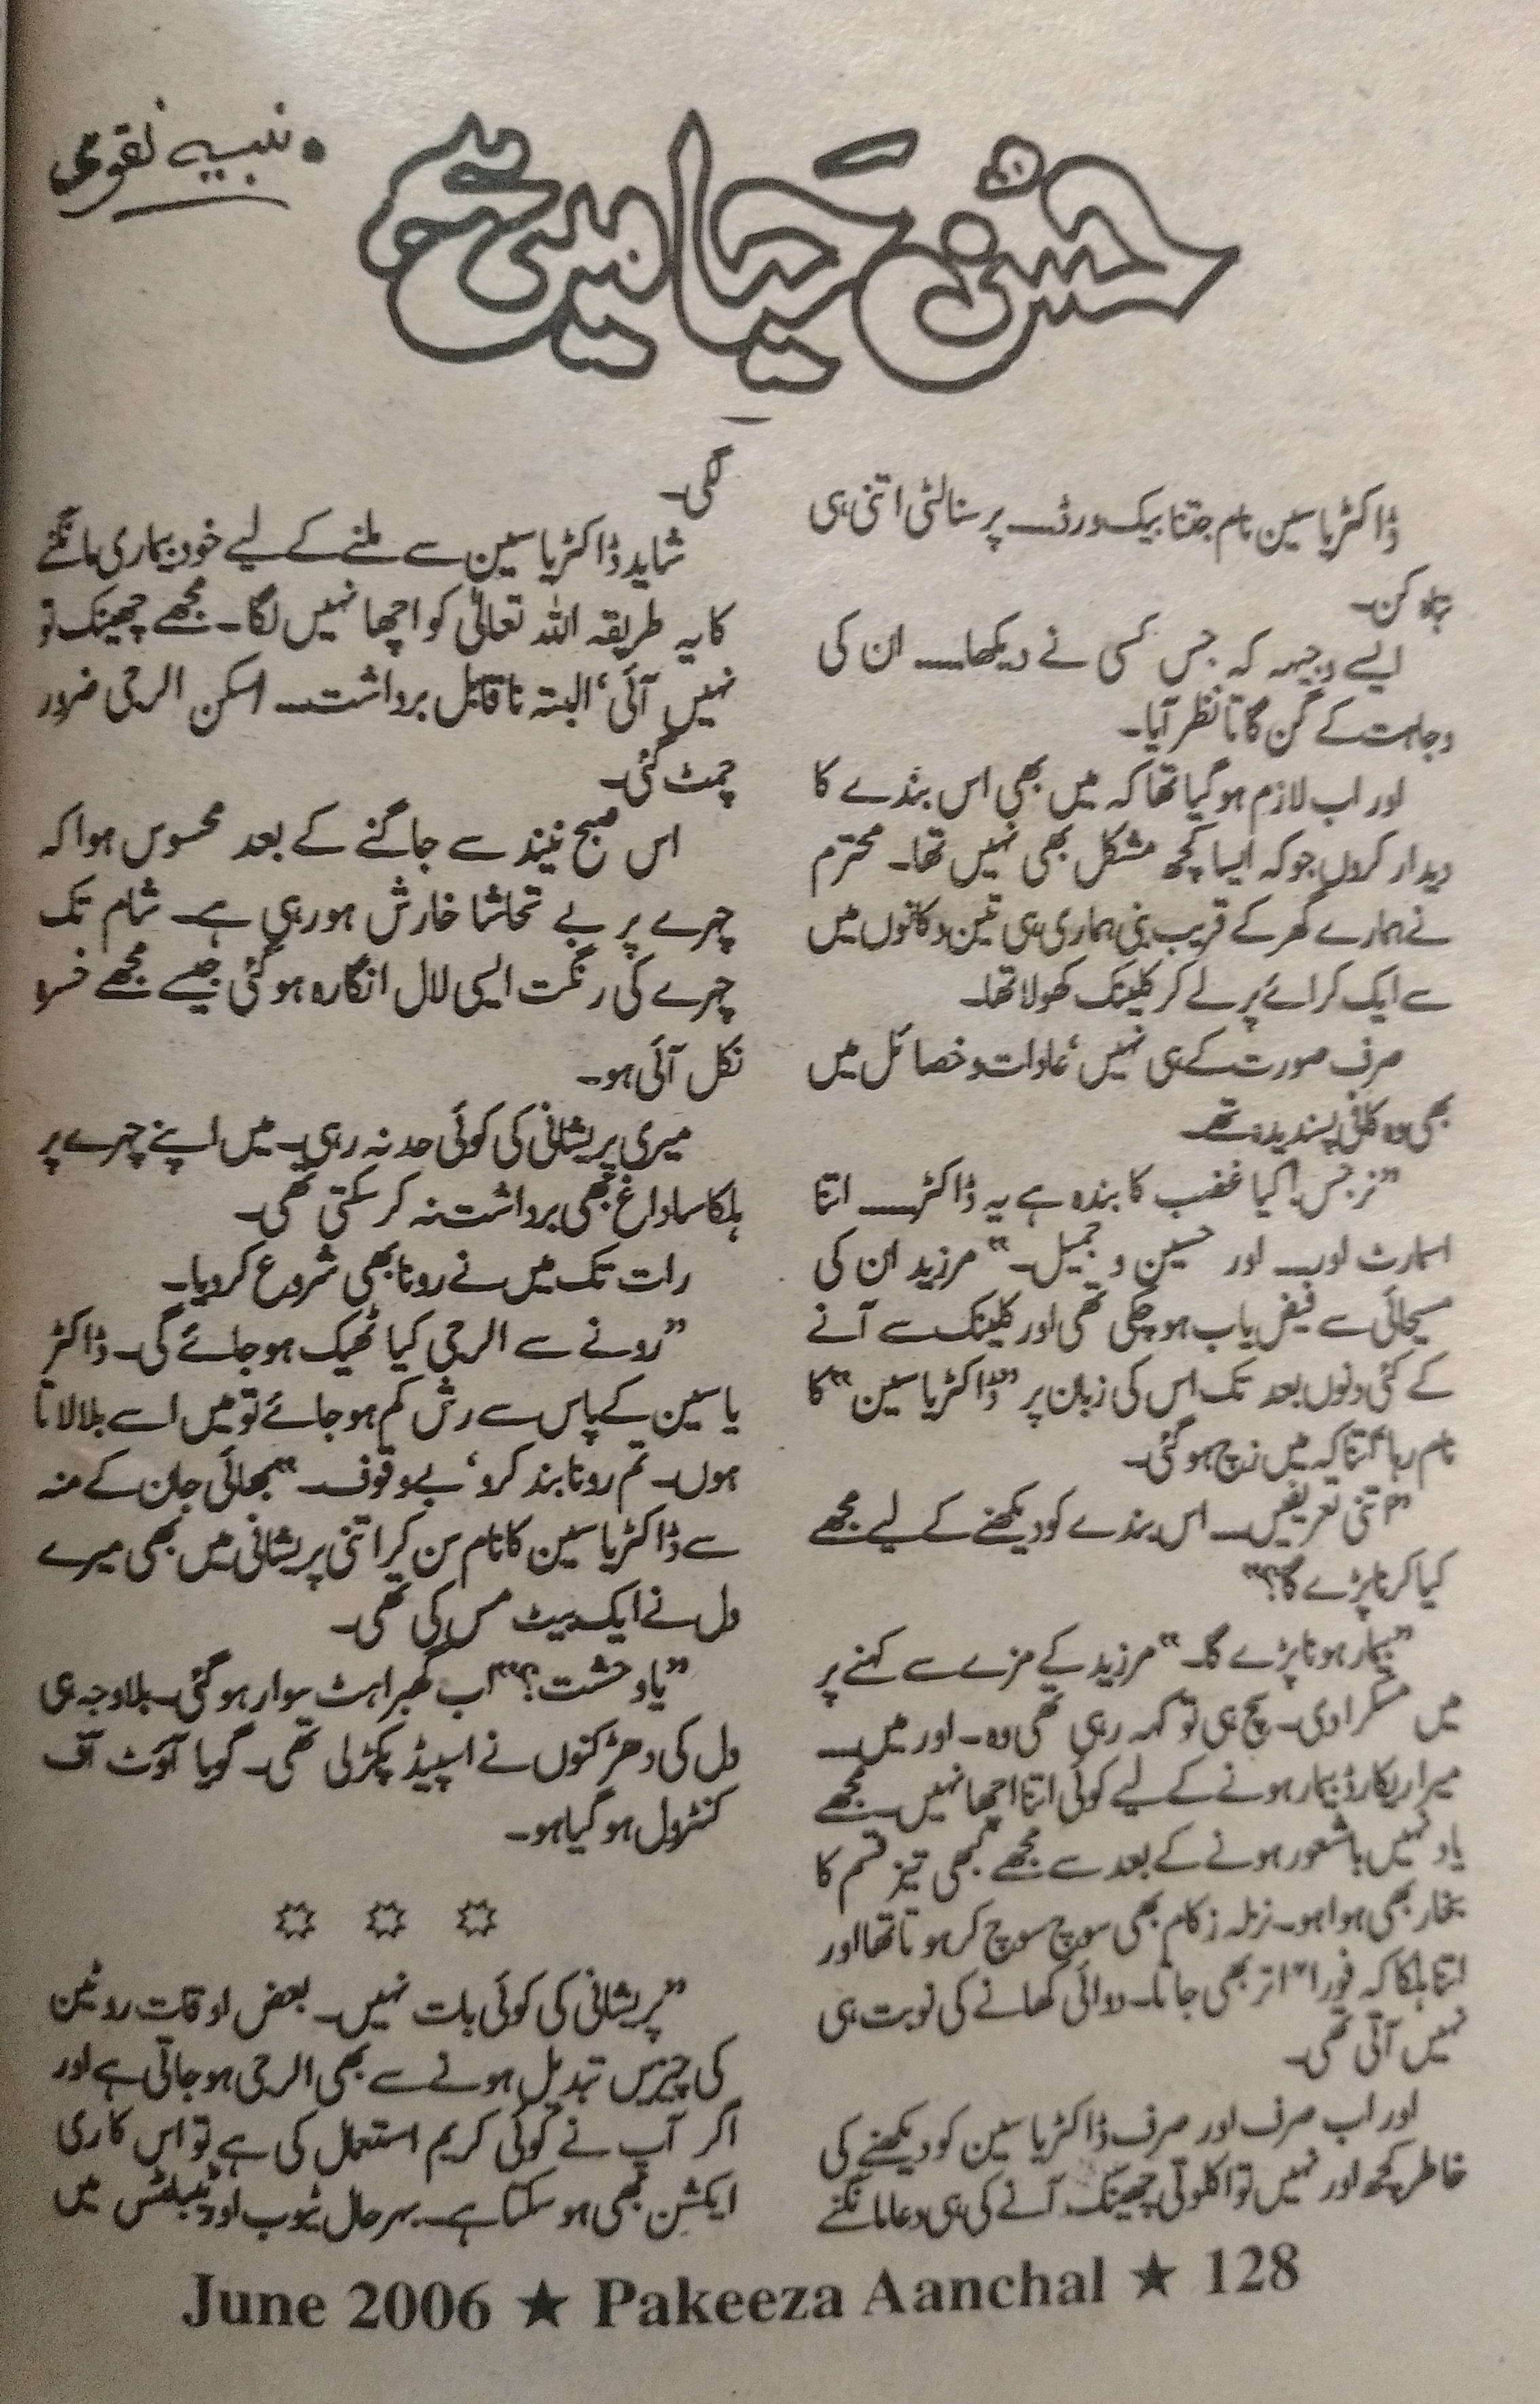 حسن حیا میں ہے
• نبیہ نقوی
ڈاکٹر یاسین نام جتنا بیک ورڈ۔۔۔۔ پرسنالٹی اتنی ہی
تباہ کن۔
ایسے وجیہہ کہ جس کسی نے دیکھا۔۔۔۔ ان کی
وجاہت کے گن گاتا نظر آیا۔
اور اب لازم ہو گیا تھا کہ میں بھی اس بندے کا
دیدار کروں جو کہ ایسا کچھ مشکل بھی نہیں تھا۔ محترم
نے ہمارے گھر کے قریب بنی ہماری ہی تین دکانوں میں
سے ایک کرائے پر لے کر کلینک کھولا تھا۔
صرف صورت کے ہی نہیں، عادات و خصائل میں
بھی وہ کافی پسندیدہ تھے۔
”نرجس! کیا غضب کا بندہ ہے یہ ڈاکٹر۔۔۔۔ اتنا
اسمارٹ اور۔۔۔ اور حسین و جمیل۔“ مرزید ان کی
مسیحائی سے فیض یاب ہو چکی تھی اور کلینک سے آنے
کے کئی دنوں بعد تک اس کی زبان پر ”ڈاکٹر یاسین“ کا
نام رہا اتنا کہ میں زچ ہو گئی۔
”اتنی تعریفیں۔۔۔ اس بندے کو دیکھنے کے لیے مجھے
کیا کرنا پڑے گا؟“
”بیمار ہونا پڑے گا۔“ مرزید کے مزے سے کہنے پر
میں مسکرا دی۔ سچ ہی تو کہہ رہی تھی وہ۔ اور میں۔۔۔
میرا ریکارڈ بیمار ہونے کے لیے کوئی اتنا اچھا نہیں۔ مجھے
یاد نہیں باشعور ہونے کے بعد سے مجھے کبھی تیز قسم کا
بخار بھی ہوا ہو۔ نزلہ زکام بھی سوچ سوچ کر ہوتا تھا اور
اتنا ہلکا کہ فوراً اتر بھی جاتا۔ دوائی کھانے کی نوبت ہی
نہیں آتی تھی۔
اور اب صرف اور صرف ڈاکٹر یاسین کو دیکھنے کی
خاطر کچھ اور نہیں تو اکلوتی چھینک آنے کی ہی دعا مانگنے
لگی۔
شاید ڈاکٹر یاسین سے ملنے کے لیے خود بیماری مانگنے
کا یہ طریقہ اللہ تعالیٰ کو اچھا نہیں لگا۔ مجھے چھینک تو
نہیں آئی، البتہ ناقابل برداشت۔۔۔ اسکن الرجی ضرور
چمٹ گئی۔
اس صبح نیند سے جاگنے کے بعد محسوس ہوا کہ
چہرے پر بے تحاشا خارش ہو رہی ہے۔ شام تک
چہرے کی رنگت ایسی لال انگارہ ہو گئی جیسے مجھے خسرہ
نکل آئی ہو۔
میری پریشانی کی کوئی حد نہ رہی۔ میں اپنے چہرے پر
ہلکا سا داغ بھی برداشت نہ کر سکتی تھی۔
رات تک میں نے رونا بھی شروع کر دیا۔
”رونے سے الرجی کیا ٹھیک ہو جائے گی۔ ڈاکٹر
یاسین کے پاس سے رش کم ہو جائے تو میں اسے بلا لاتا
ہوں۔ تم رونا بند کرو، بے وقوف۔“ بھائی جان کے منہ
سے ڈاکٹر یاسین کا نام سن کر اتنی پریشانی میں بھی میرے
دل نے ایک بیٹ مس کی تھی۔
”یا وحشت؟“ اب گھبراہٹ سوار ہو گئی۔ بلاوجہ ہی
دل کی دھڑکنوں نے اسپیڈ پکڑ لی تھی۔ گویا آؤٹ آف
کنٹرول ہو گیا ہو۔
”پریشانی کی کوئی بات نہیں۔ بعض اوقات روٹین
کی چیزیں تبدیل ہونے سے بھی الرجی ہو جاتی ہے اور
اگر آپ نے کوئی کریم استعمال کی ہے تو اس کا ری
ایکشن بھی ہو سکتا ہے۔ بہرحال ٹیوب اور ٹیبلٹس میں
June 2006 ★ Pakeeza Aanchal ★ 128